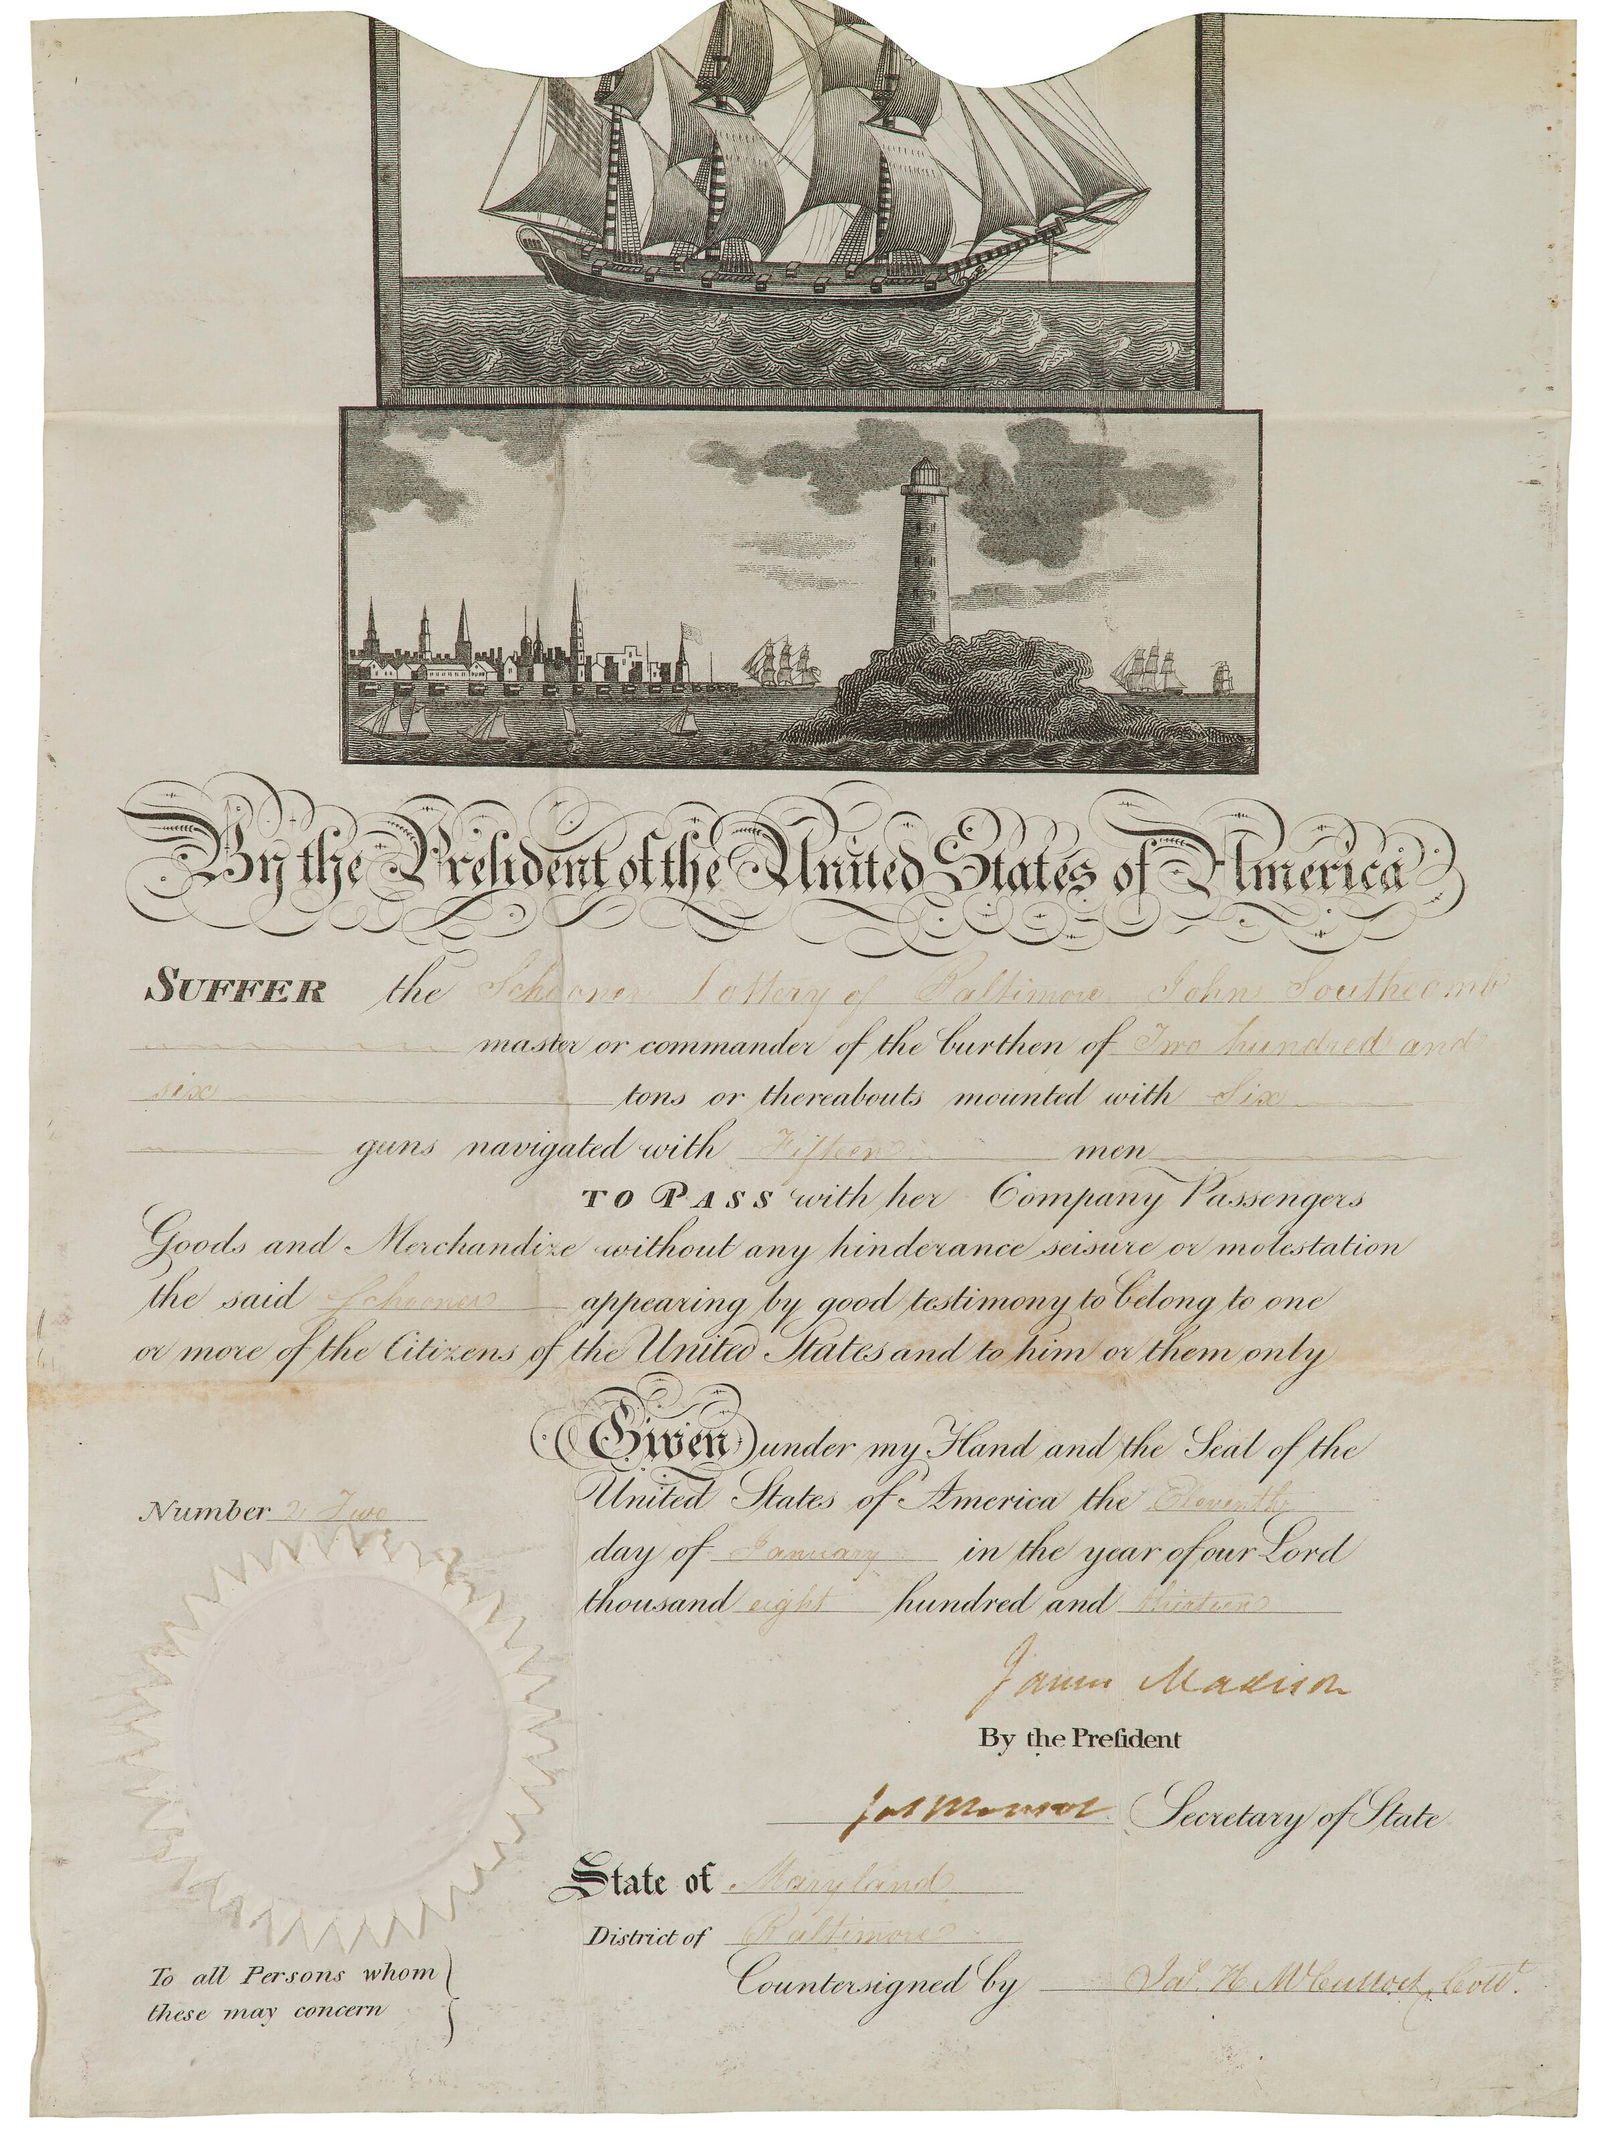 By the President of the United States of America
SUFFER the Schooner Lottery of Baltimore John Southcomb
master or commander of the burthen of Two hundred and
six tons or thereabouts mounted with Six
guns navigated with Fifteen men
TO PASS with her Company Passengers
Goods and Merchandize without any hinderance seisure or molestation
the said Schooner appearing by good testimony to belong to one
or more of the Citizens of the United States and to him or them only
Given under my Hand and the Seal of the
United States of America the Eleventh
day of January in the year of our Lord
thousand eight hundred and thirteen
Number 2 Two
James Madison
By the Preſident
Jas Monroe Secretary of State
State of Maryland
District of Baltimore
Countersigned by Jas. H. McCulloch, Collr.
To all Persons whom
these may concern